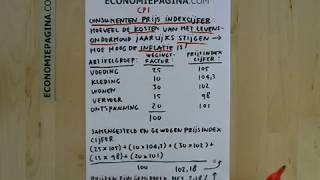 ECONOMIEPAGINA.COM
CPI
CONSUMENTEN PRIJS INDEXCIJFER:
HOEVEEL DE KOSTEN VAN HET LEVENS-
ONDERHOUD JAARLIJKS STIJGEN →
HOE HOOG DE INFLATIE IS!
WEGINGS- PRIJSINDEX
ARTIKELGROEP: FACTOR: CIJFER:
VOEDING 25 105
KLEDING 10 104,3
WONEN 30 102
VERVOER 15 98
ONTSPANNING 20 101
100
SAMENGESTELD EN GEWOGEN PRIJSINDEX
CIJFER
(25 x 105) + (10 x 104,3) + (30 x 102) +
(15 x 98) + (20 x 101)
100 = 102,18
PRIJZEN ZIJN GEMIDDELD MET 2,18% ↑